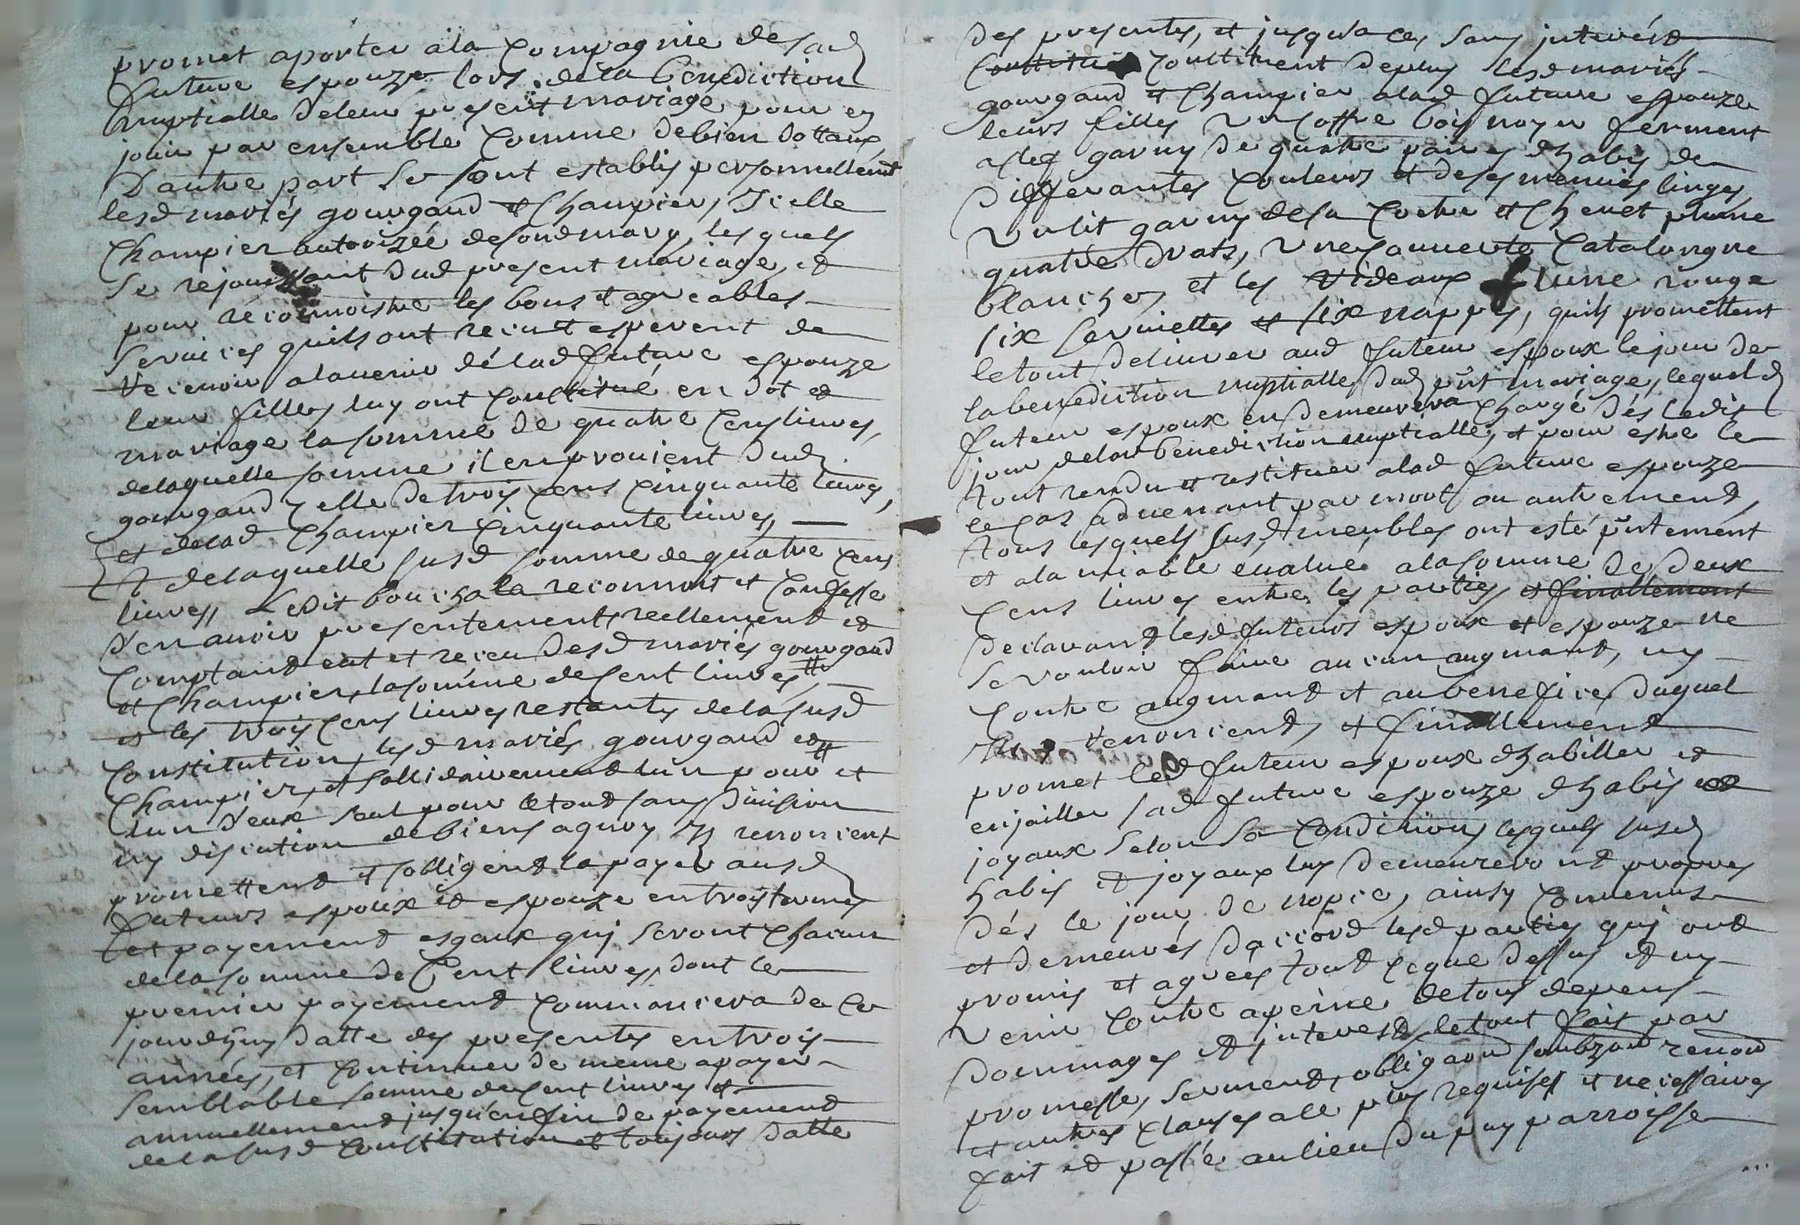 promet aporter a la compagnie de sad
future espouze lors de la benediction
nuptialle de leur present mariage pour en
jouir par ensemble comme de bien dottaux
D'autre part se sont establis personnellemt
lesd mariés gourgaud et Champier, Icelle
Champier autorizée de sond mary, lesquels
se rejouissant dud present mariage, et
pour reconnoistre les bons et agreables
services quils ont receu et esperent de
recevoir a lavenir de lad future espouze
leur fille, luy ont constitué en dot et
mariage la somme de quatre cens livres,
de laquelle somme il en provient dud
gourgaud celle de trois cens cinquante livres,
et de lad Champier cinquante livres,
de laquelle susd somme de quatre cens
livres Ledit bouchala reconnoit et confesse
d'en avoir presentement reellement et
comptant eut et receu desd mariés gourgaud
et Champier, la somme de cent livres
et les trois cens livres restants de la susd
constitution, lesd mariés gourgaud et
Champier, sollidairement lun pour et
lun d'eux seul pour le tout sans division
ny discution de biens a quoy ils renoncent
promettent et sobligent la payer ausd
futurs espoux et espouze en trois termes
et payement esgaux quj seront chacun
de la somme de Cent livres, dont le
premier payement commancera de ce
jourdhuy datte des presentes en trois
années, et continuer de meme a payer
semblable somme de cent livres
annuellement jusqu'en fin de payement
de la susd constitution et toujours datte
des presentes, et jusqu'a ce, sans interest
constituent depuis lesd mariés
gourgaud et Champier a lad future espouze
leurs filles un coffre bois noyer ferment
a clef garny de quatre paires d'habis de
differantes couleurs et de ses menus linges
un lit garny de sa coetre et Chevet plume
quatre draps, une couverte Catalongne
blanche, et les rideaux laine rouge
six serviettes et six nappes, quils promettent
le tout delivrer aud futeur espoux le jour de
la benediction nuptialle dud pnt mariage, lequel d
futeur espoux en demeurera chargé dés ledit
jour de la benediction nuptialle, et pour estre le
tout rendu et restituer a lad future espouze
le cas advenant par mort ou autrement,
tous lesquels susd meubles ont esté pntement
et a la miable evalués a la somme de deux
cens livres entre les parties et finallement
declarant lesd futeurs espoux et espouze ne
se vouloir faire aucun augmant, ny
contre augmant et au benefice duquel
renoncient, et finallement
promet led futeur espoux dhabiller et
enjailler sad future espouze dhabis et
joyaux selon sa condition, lesquels susd
habis et joyaux luy demeureront propres
dés le jour de nopce, ainsy convenus
et demeurés d'accord lesd parties quj ont
promis et agreés tout ce que dessus et ny
venir contre a peine de tous depens
dommages et interest, le tout fait par
promesse, serment, obligaon soubzaon renon
et autres clauses a ce plus requises et necessaires
fait et passé au lieu du puy parroisse